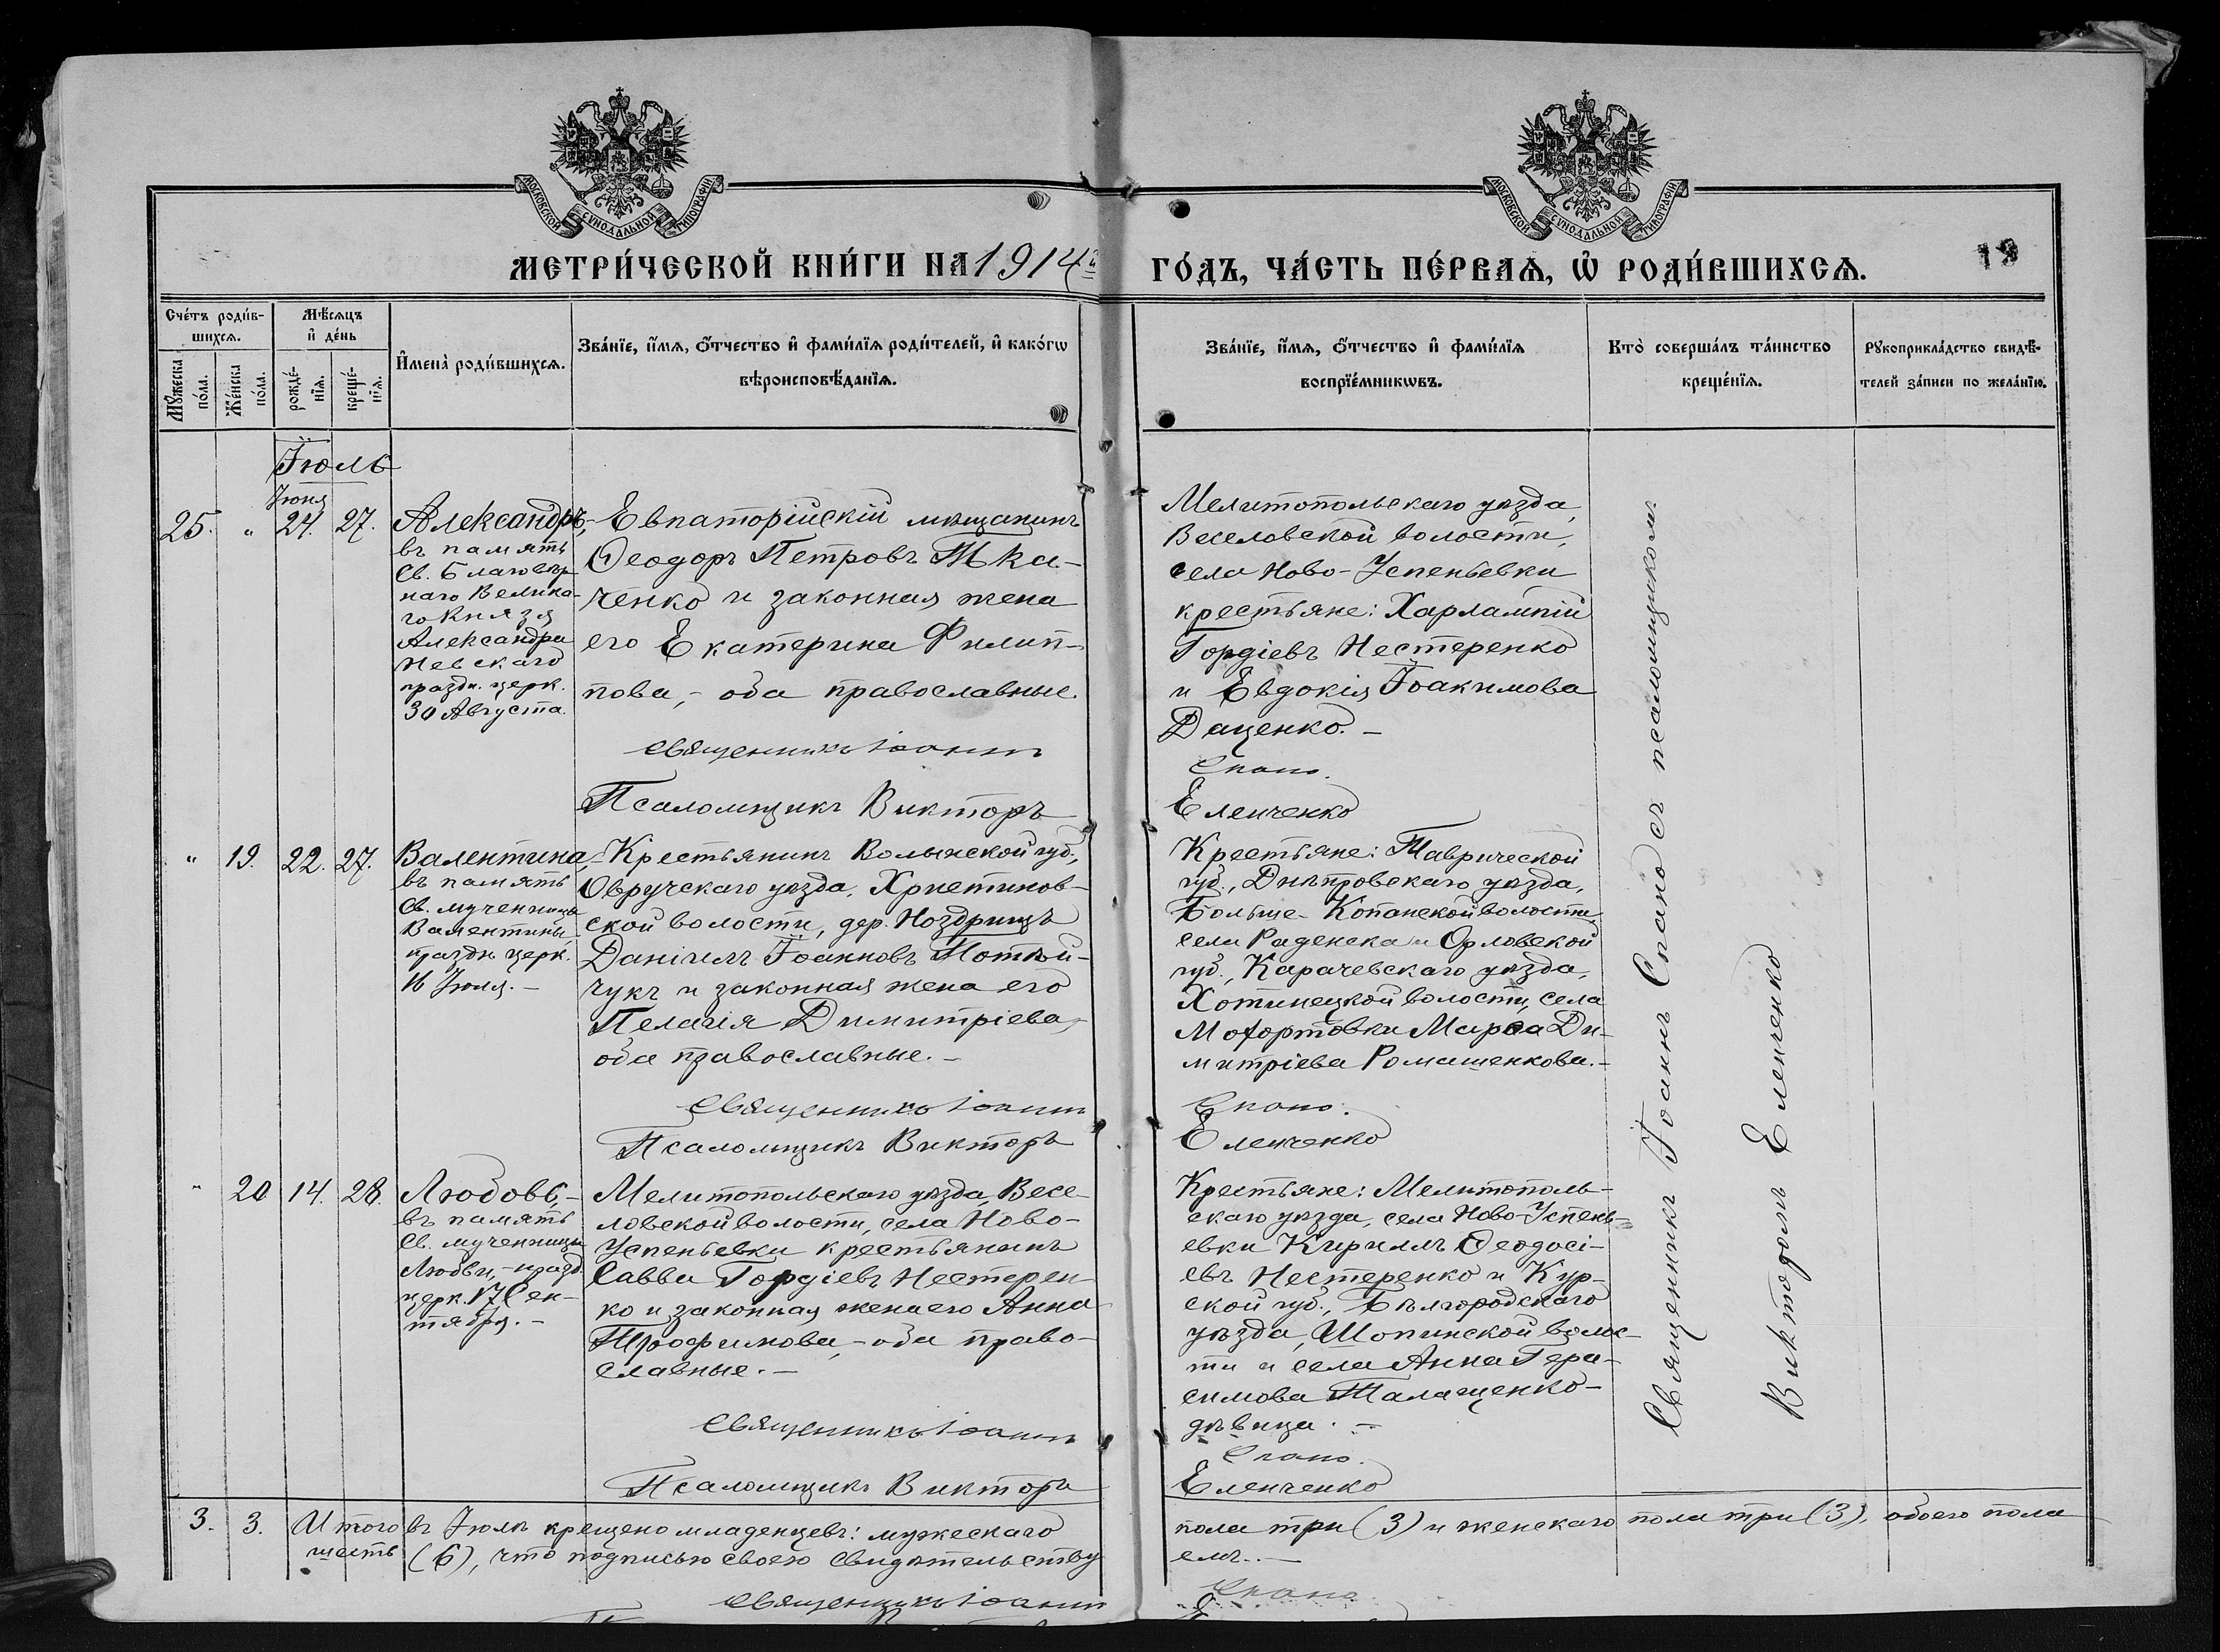 МОСКОВСКОЙ СѴНОДАЛЬНОЙ ТИПОГРАФІИ
МОСКОВСКОЙ СѴНОДАЛЬНОЙ ТИПОГРАФІИ
МЕТРИ́ЧЕСКОЙ КНИ́ГИ НА 1914й
ГО́ДЪ, ЧА́СТЬ ПЕ́РВАѦ, Ѡ҆ РОДИ́ВШИХСѦ.
Сче́тъ роди́в-
шихсѧ.
Мꙋ́жеска
по́ла.
Же́нска
по́ла.
Мѣ́сѧцъ
и҆ де́нь
рожде́-
нїѧ.
креще́-
нїѧ.
И҆мена̀ роди́вшихсѧ.
Зва́нїе, и҆́мѧ, ѻ҆́тчество и҆ фами́лїѧ роди́телей, и҆ како́гѡ
вѣроисповѣ́данїѧ.
Зва́нїе, и҆́мѧ, ѻ҆́тчество и҆ фами́лїѧ
воспрїе́мникѡвъ.
Кто̀ соверша́лъ та́инство
креще́нїѧ.
Рꙋкоприкла́дство свидѣ́-
телей за́писи по жела́нїю.
Іюль
Іюня
25. " 24. 27.
Александръ,
въ память
Св. Благовѣр-
наго Велика-
го Князя
Александра
Невскаго
праздн. церк.
30 Августа.
Евпаторійскій мѣщанинъ
Ѳеодоръ Петровъ Тка-
ченко и законная жена
его Екатерина Филип-
пова, - оба православные.
Священникъ Іоаннъ
Псаломщикъ Викторъ
Мелитопольскаго уѣзда,
Веселовской волости,
села Ново-Успеньевки
крестьяне: Харлампій
Гордіевъ Нестеренко
и Евдокія Іоакимова
Даценко. -
Спано.
Еленченко
" 19. 22. 27.
Валентина,
въ память
Св. мученицы
Валентины
праздн. церк.
16 Іюля. -
Крестьянинъ Волынской губ.,
Овручскаго уѣзда, Христинов-
ской волости, дер. Ноздрищъ
Даніилъ Іоанновъ Мотѣй-
чукъ и законная жена его
Пелагія Димитріева,
оба православные. -
Священникъ Іоаннъ
Псаломщикъ Викторъ
Крестьяне: Таврической
губ., Днѣпровскаго уѣзда,
Больше-Копанской волости,
села Раденска и Орловской
губ., Карачевскаго уѣзда,
Хотинецкой волости, села
Марѳа Ди-
митріева Ромашенкова. -
Спано.
Еленченко
" 20 14. 28.
Любовь, -
въ память
Св. мученицы
Любви, - празд.
церк. 17 Сен-
тября. -
Мелитопольскаго уѣзда, Весе-
ловской волости, села Ново-
Успеньевки крестьянинъ
Савва Гордіевъ Нестерен-
ко и законная жена его Анна
Трофимова, - оба право-
славные. -
Священникъ Іоаннъ
Псаломщикъ Викторъ
Крестьяне: Мелитополь-
скаго уѣзда, села Ново-Успень-
евки Кириллъ Ѳеодосі-
евъ Нестеренко и Кур-
ской губ., Бѣлгородскаго
уѣзда, Шопинской волос-
ти и села Анна Гера-
симова Талащенко -
дѣвица. -
Спано.
Еленченко
Священникъ Іоаннъ Спано съ псаломщикомъ
Викторомъ Еленченко
3. 3. Итого въ Іюлѣ крещено младенцевъ: мужескаго
пола три (3) и женскаго пола три (3), обоего пола
шесть (6), что подписью своею свидѣтельству
емъ. -
Священникъ Іоаннъ
Спано.